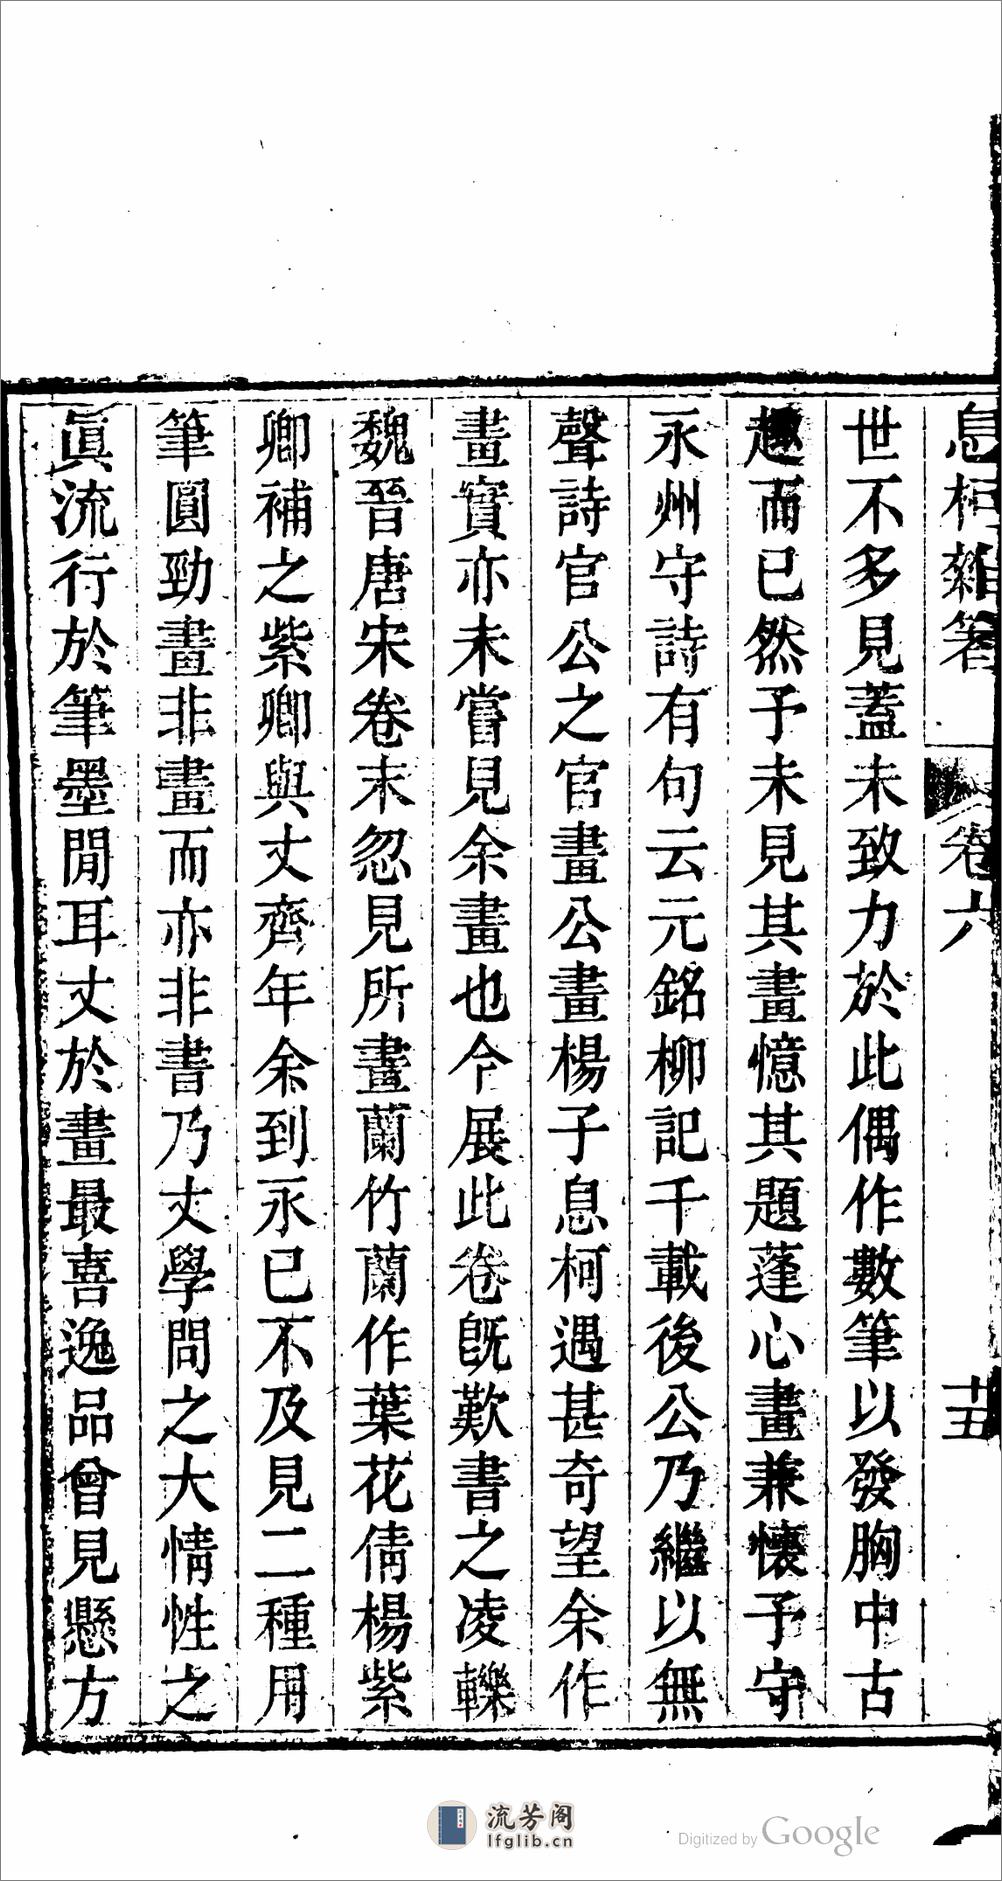 息柯雜著 卷六 廿五
世不多見蓋未致力於此偶作數筆以發胸中古
趣而已然予未見其畫憶其題蓬心畫兼懷予守
永州守詩有句云元銘柳記千載後公乃繼以無
聲詩官公之官畫公畫楊子息柯遇甚奇望余作
畫實亦未嘗見余畫也今展此卷旣歎書之凌轢
魏晉唐宋卷末忽見所畫蘭竹蘭作葉花倩楊紫
卿補之紫卿與丈齊年余到永已不及見二種用
筆圓勁畫非畫而亦非書乃丈學問之大情性之
眞流行於筆墨閒耳丈於畫最喜逸品曾見懸方
流芳阁
lfglib.cn
Digitized by Google